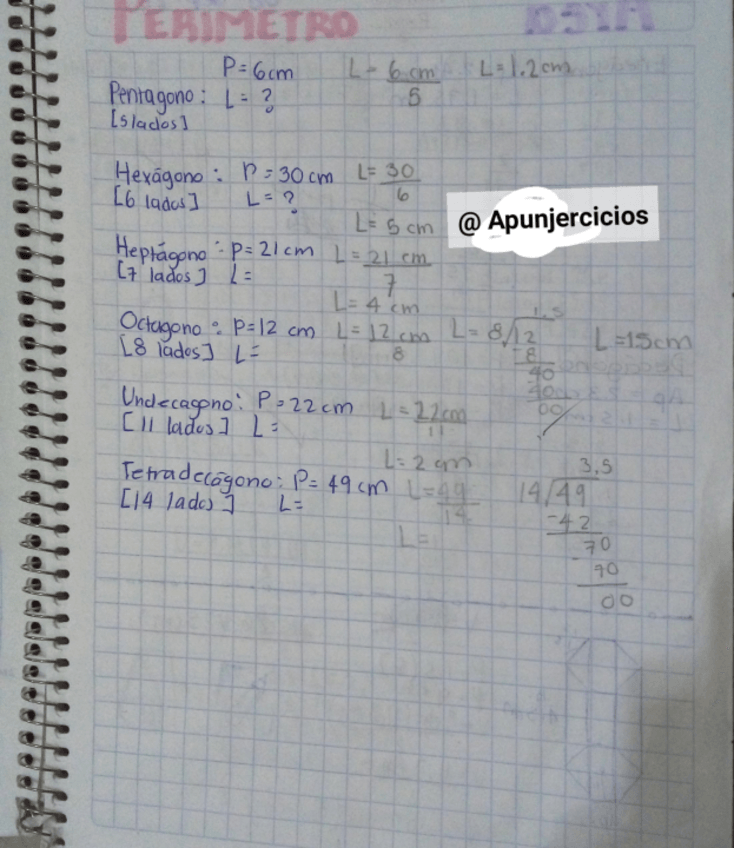 PERIMETRO
P = 6cm L = 6 cm L = 1.2 cm
Pentagono: L = ? 5
[5 lados]
Hexágono: P = 30 cm L = 30
[6 lados] L = ? 6
L = 5 cm
@ Apunjercicios
Heptágono: P = 21 cm L = 21 cm
[7 lados] L = 7
L = 4 cm
1,5
Octagono: P = 12 cm L = 12 cm L = 8√12 L = 15cm
[8 lados] L = 8 -8
40
40
00
Undecagono: P = 22 cm L = 22cm
[11 lados] L = 11
L = 2 cm
3,5
Tetradecágono: P = 49 cm L = 49 14√49
[14 lados] L = 14 -42
L = 70
- 70
00